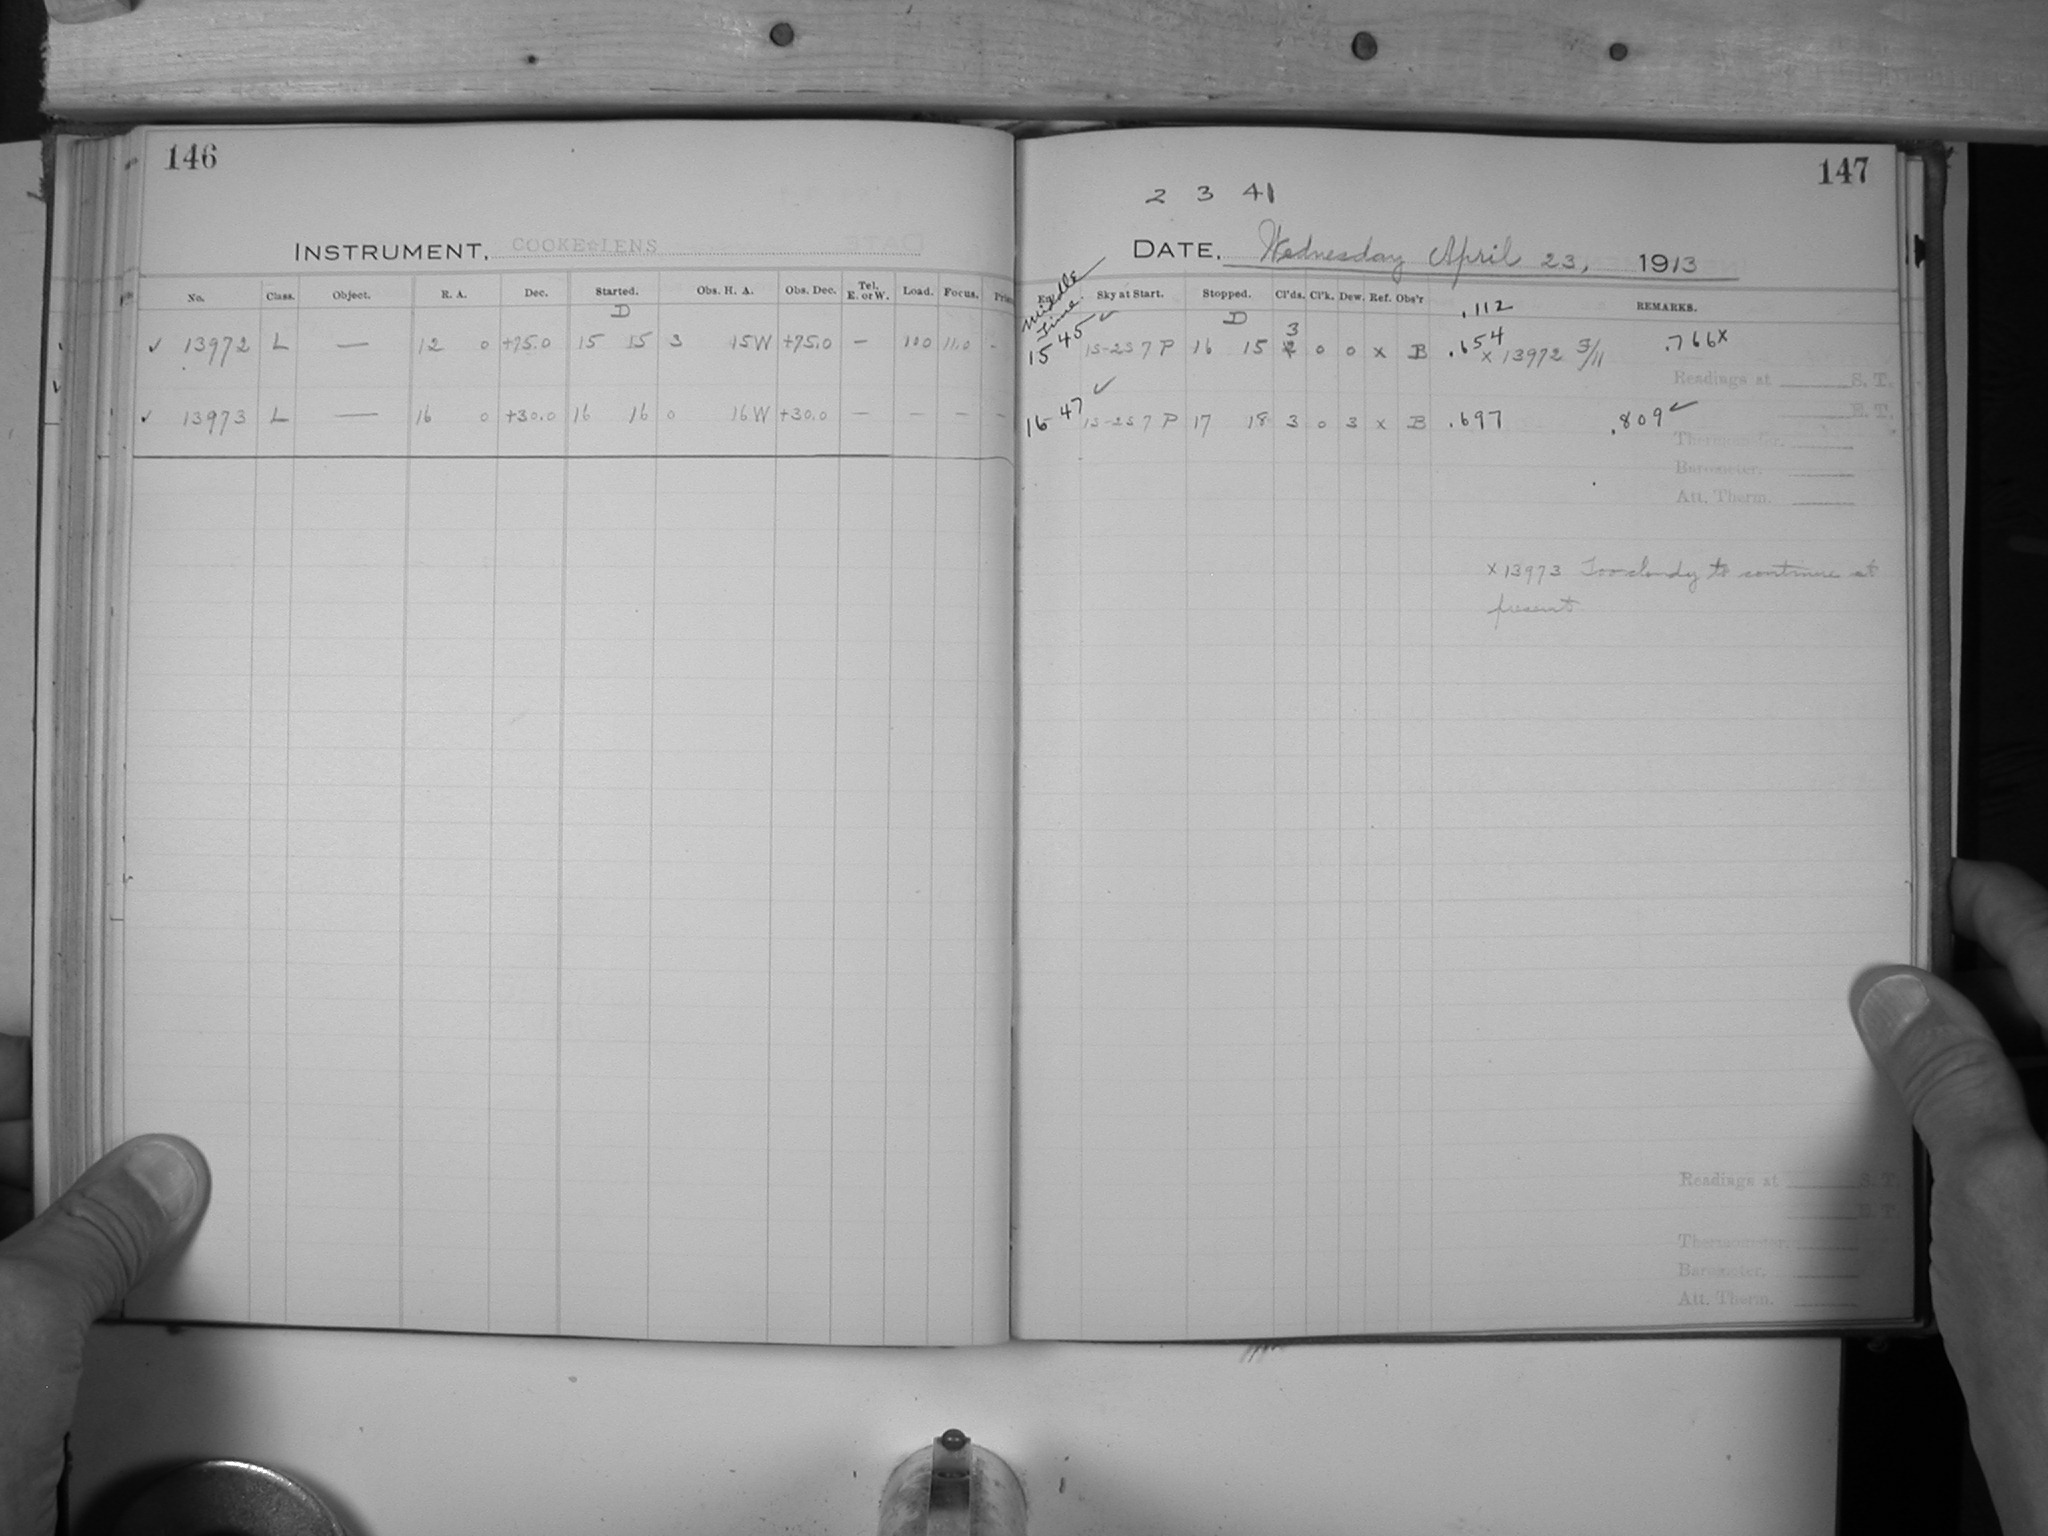 146
INSTRUMENT, COOKE LENS
No. Class. Object. R. A. Dec. Started. Obs. H. A. Obs. Dec. Tel. E. or W. Load. Focus.
D
✓ 13972 L — 12 0 +75.0 15 15 3 15W +75.0 — 100 11.0 -
✓ 13973 L — 16 0 +30.0 16 16 0 16W +30.0 — — — -
147
2 3 41
DATE, Wednesday April 23, 1913
Middle Time. Sky at Start. Stopped. Cl'ds. Cl'k. Dew. Ref. Obs'r REMARKS.
.112
D 3
15 45 ✓ 15-25 7 P 16 15 0 0 x B .654 .766x
x 13972 3/11
Readings at S. T.
16-47 ✓ 15-25 7 P 17 18 3 0 3 x B .697 .809 ✓
E. T.
Thermometer.
Barometer.
Att. Therm.
x 13973 Too cloudy to continue at
present
Readings at S. T.
E. T.
Thermometer.
Barometer.
Att. Therm.